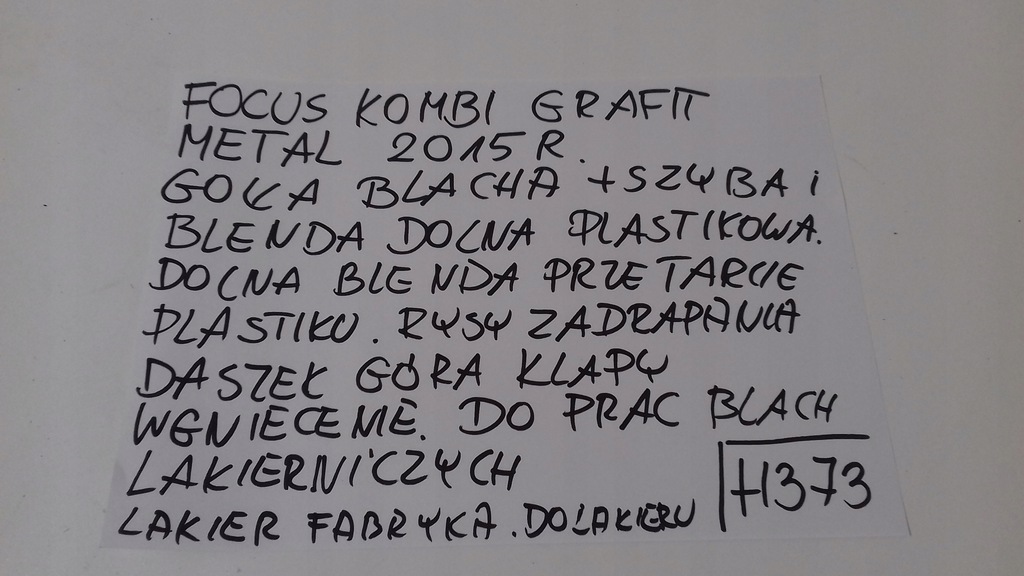 FOCUS KOMBI GRAFIT
METAL 2015 R.
GOŁA BLACHA + SZYBA I
BLENDA DOLNA PLASTIKOWA.
DOLNA BLENDA PRZETARCIE
PLASTIKU. RYSY ZADRAPANIA
DASZEK GÓRA KLAPY
WGNIECENIE. DO PRAC BLACH
LAKIERNICZYCH
LAKIER FABRYKA. DO LAKIERU
H373